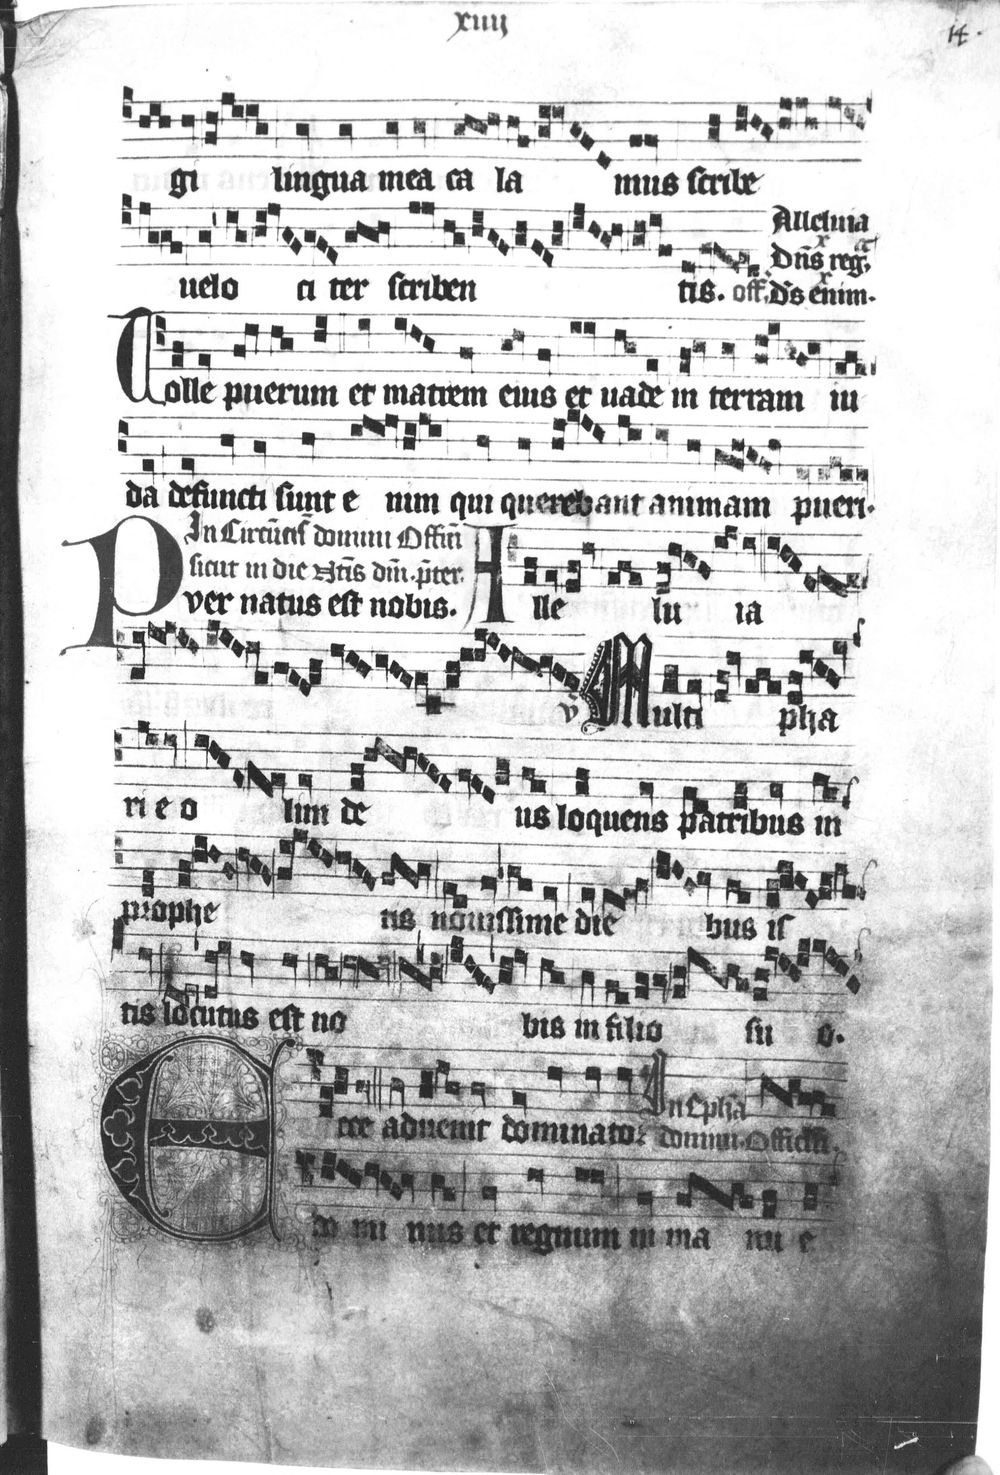 xiiij
14.
gi lingua mea ca la mus scribe
uelo ci ter scriben tis. off.
Alleluia
Dñs reg.
d's enim.
Tolle puerum et matrem eius et uade in terram iu
da defuncti sunt e nim qui querebant animam pueri.
In Circũcis domini Offiñ
sicut in die Nat̃is dñi. p̃ter.
Puer natus est nobis. Alle lu ia
v̓ Multi pha
ri e o lim de us loquens patribus in
prophe tis nouissime die bus is
tis locutus est no bis in filio su o.
Ecce aduenit dominator
In Epħa
domini. Officiũ.
do mi nus et regnum in ma nu e